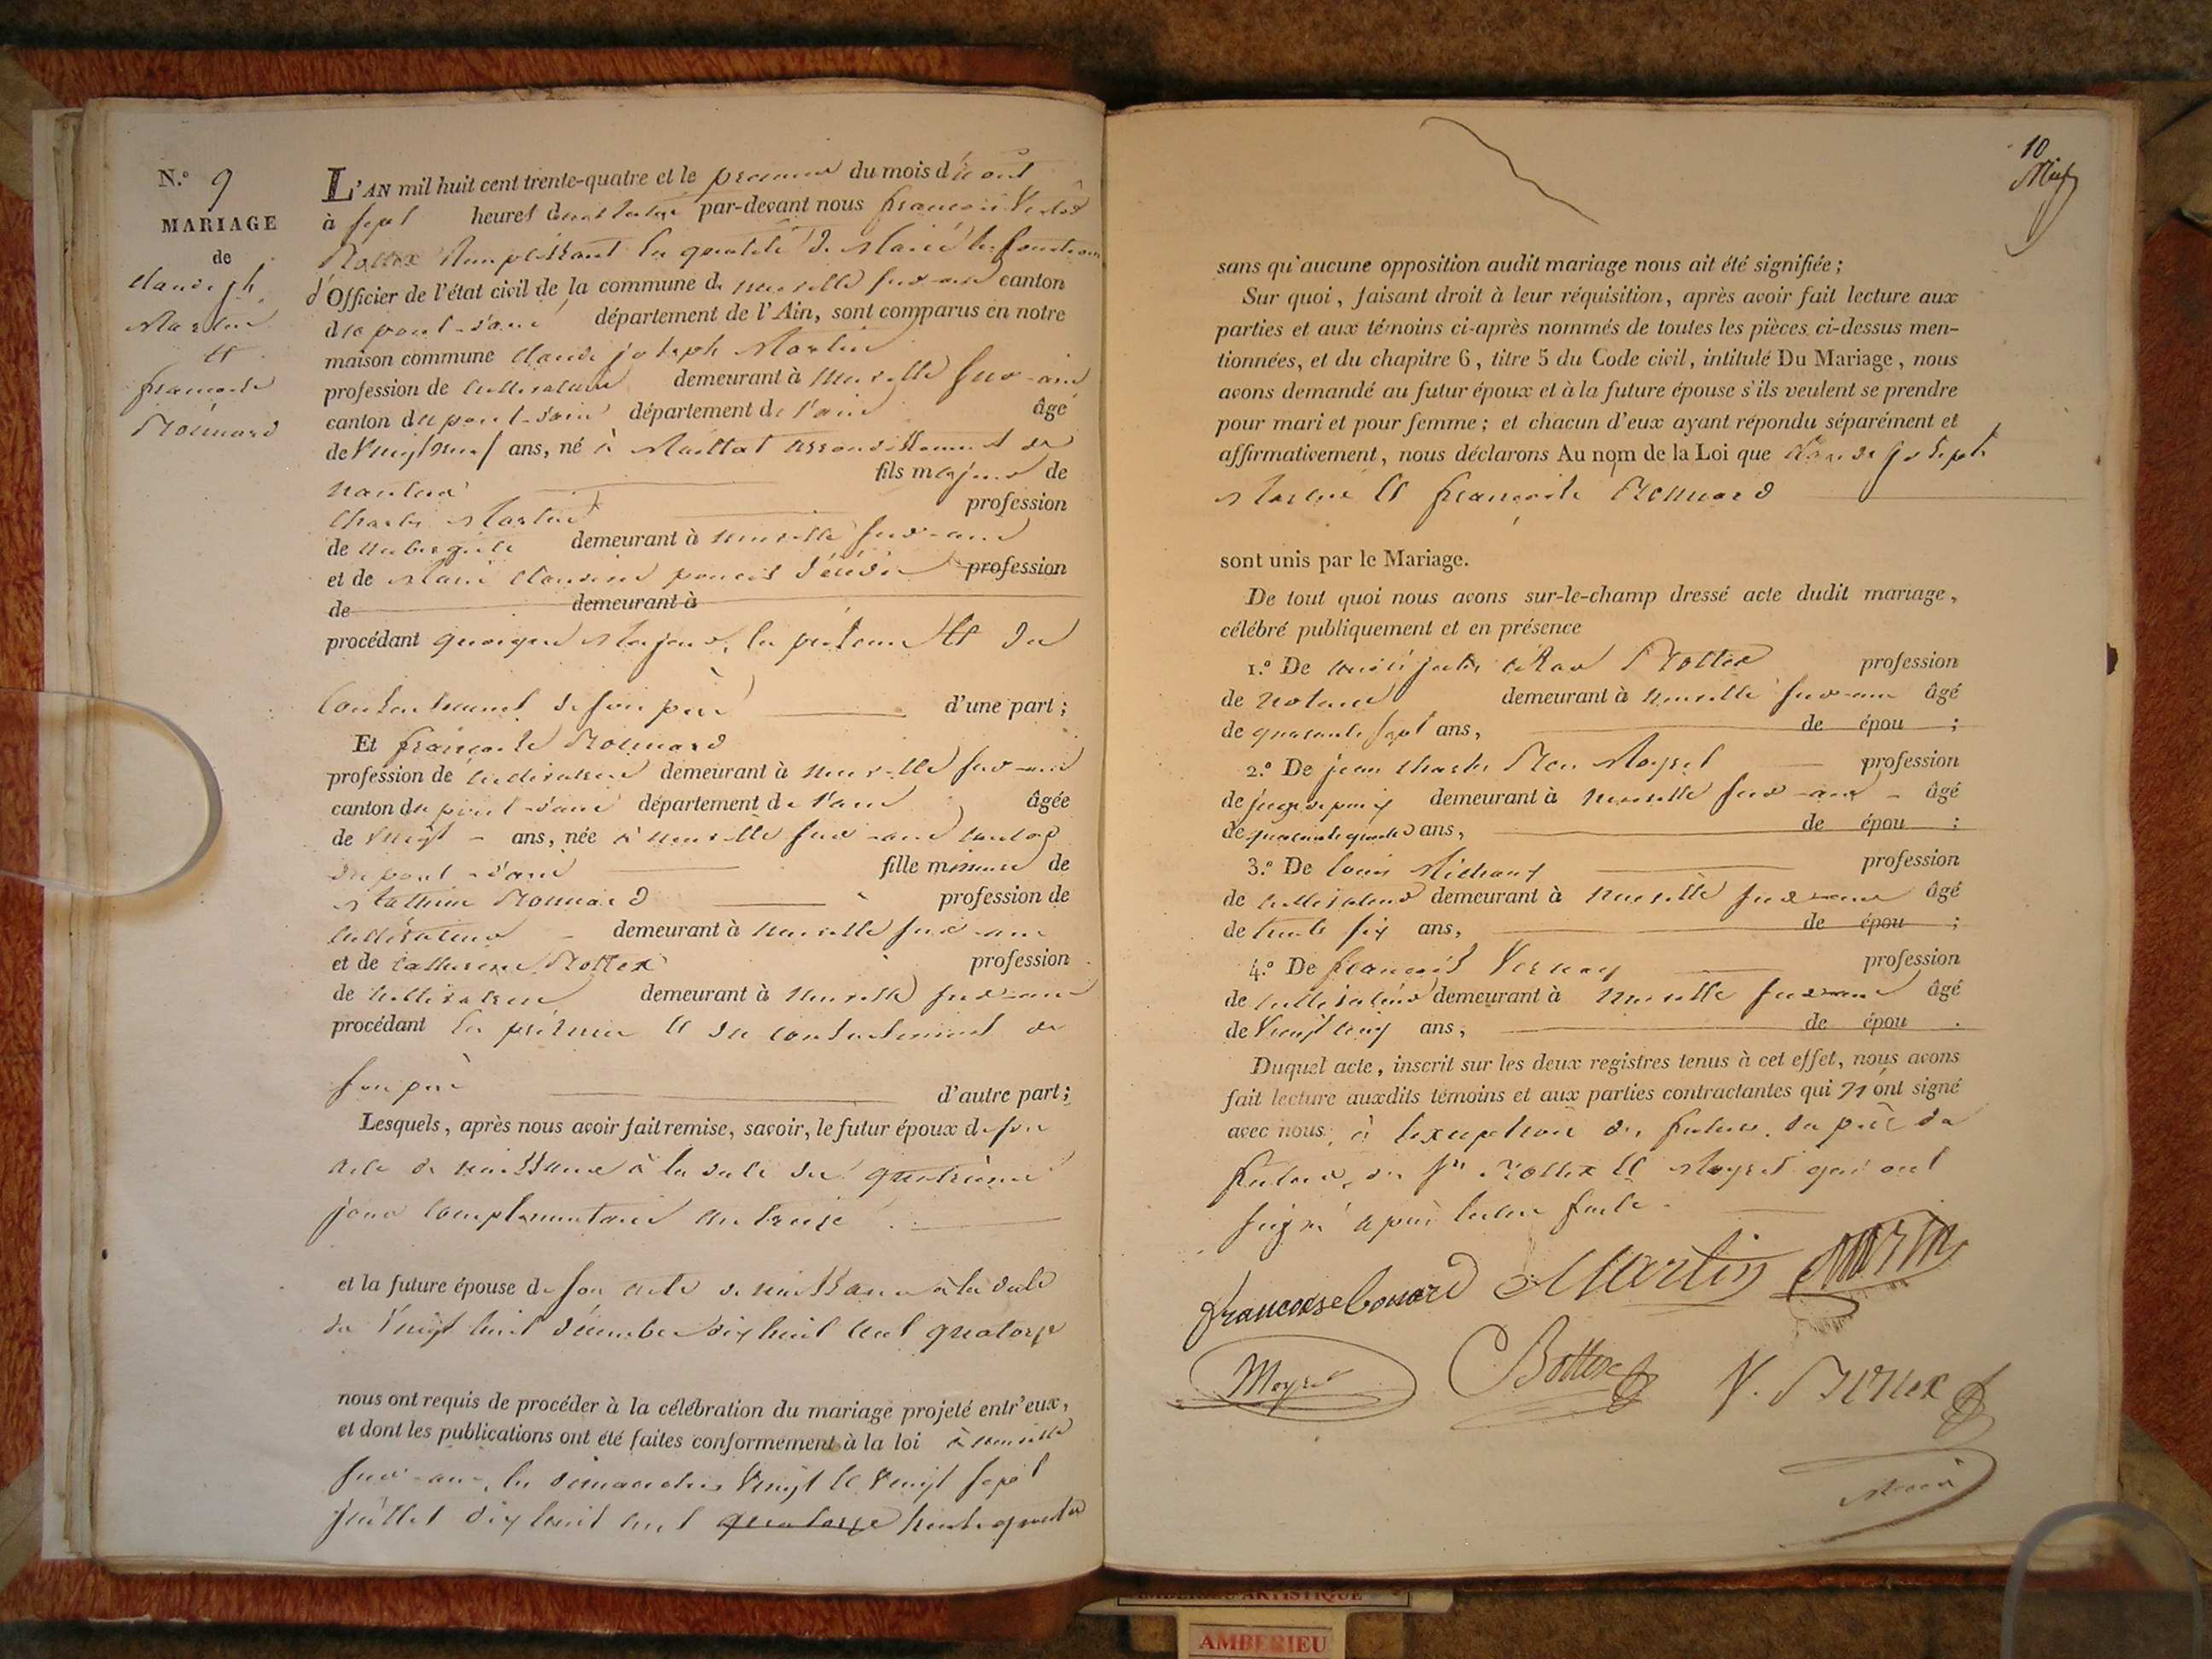 N.° 9
MARIAGE
de
Claude jh
Martin
et
françoise
L'AN mil huit cent trente-quatre et le premier du mois d'août
à sept heures du matin par-devant nous françois
remplissant en qualité de Maire les fonctions
d'Officier de l'état civil de la commune de neuville sur ain canton
de pont-d'ain département de l'Ain, sont comparus en notre
maison commune Claude joseph Martin
profession de cultivateur demeurant à neuville sur-ain
canton de pont-d'ain département de l'ain âgé
de vingt neuf ans, né à Maillat arrondissement de
nantua fils majeur de
Charles Martin profession
de aubergiste demeurant à neuville sur-ain
et de Marie Claudine poncet décédée profession
de demeurant à
procédant quoique Majeur, en présence et du
Consentement de son père d'une part ;
Et françoise
profession de cultivatrice demeurant à neuville sur-ain
canton de pont-d'ain département de l'ain âgée
de vingt ans, née à neuville sur-ain canton
de pont-d'ain fille mineure de
profession de
cultivateur demeurant à neuville sur-ain
et de Catherine Bottex profession
de cultivatrice demeurant à neuville sur-ain
procédant en présence et du consentement de
son père d'autre part ;
Lesquels, après nous avoir fait remise, savoir, le futur époux de son
acte de naissance à la date du quatrième
jour complémentaire an treize
et la future épouse de son acte de naissance à la date
du vingt huit décembre dix huit cent quatorze
nous ont requis de procéder à la célébration du mariage projeté entr'eux,
et dont les publications ont été faites conformement à la loi à neuville
sur-ain, les dimanches vingt et vingt sept
juillet dix huit cent quatorze trente quatre
10
sans qu'aucune opposition audit mariage nous ait été signifiée ;
Sur quoi, faisant droit à leur réquisition, après avoir fait lecture aux
parties et aux témoins ci-après nommés de toutes les pièces ci-dessus men-
tionnées, et du chapitre 6, titre 5 du Code civil, intitulé Du Mariage, nous
avons demandé au futur époux et à la future épouse s'ils veulent se prendre
pour mari et pour femme ; et chacun d'eux ayant répondu séparément et
affirmativement, nous déclarons Au nom de la Loi que Claude joseph
Martin et françoise
sont unis par le Mariage.
De tout quoi nous avons sur-le-champ dressé acte dudit mariage,
célébré publiquement et en présence
1.° De Bottex profession
de notaire demeurant à neuville sur-ain âgé
de quarante sept ans, de épou ;
2.° De jean Charles Moyret profession
de juge de paix demeurant à neuville sur-ain âgé
de quarante quatre ans, de épou ;
3.° De louis Michaux profession
de cultivateur demeurant à neuville sur-ain âgé
de trente six ans, de épou ;
4.° De françois Vernay profession
de cultivateur demeurant à neuville sur-ain âgé
de vingt cinq ans, de épou .
Duquel acte, inscrit sur les deux registres tenus à cet effet, nous avons
fait lecture auxdits témoins et aux parties contractantes qui n'ont signé
avec nous, à l'exception des futurs, du père du
futur, des Srs Bottex et Moyret qui ont
signé après lecture faite.
francoise bonard Martin
Moyret Bottex